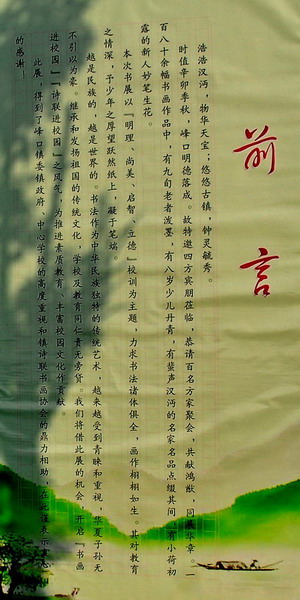 前言
浩浩汉沔，物华天宝；悠悠古镇，钟灵毓秀。
时值辛卯季秋，峰口明德落成。故特邀四方宾朋莅临，恭请百名方家聚会，共献鸿猷，同展华章。一
百八十余幅书画作品中，有九旬老者泼墨，有八岁少儿丹青，有蜚声汉沔的名家名品点缀其间，有小荷初
露的新人妙笔生花。
本次书展以『明理、尚美、启智、立德』校训为主题，力求书法诸体俱全，画作栩栩如生。其对教育
之情深，予少年之厚望跃然纸上，凝于笔端。
越是民族的，越是世界的。书法作为中华民族独特的传统艺术，越来越受到青睐和重视，华夏子孙无
不引以为豪。继承和发扬祖国的传统文化，学校及教育同仁责无旁贷。我们将借此展的机会，开启『书画
进校园』『诗联进校园』之风气，为推进素质教育、丰富校园文化作贡献。
此展，得到了峰口镇委镇政府、中心学校的高度重视和镇诗联书画协会的鼎力相助，在此谨表示衷心
的感谢！